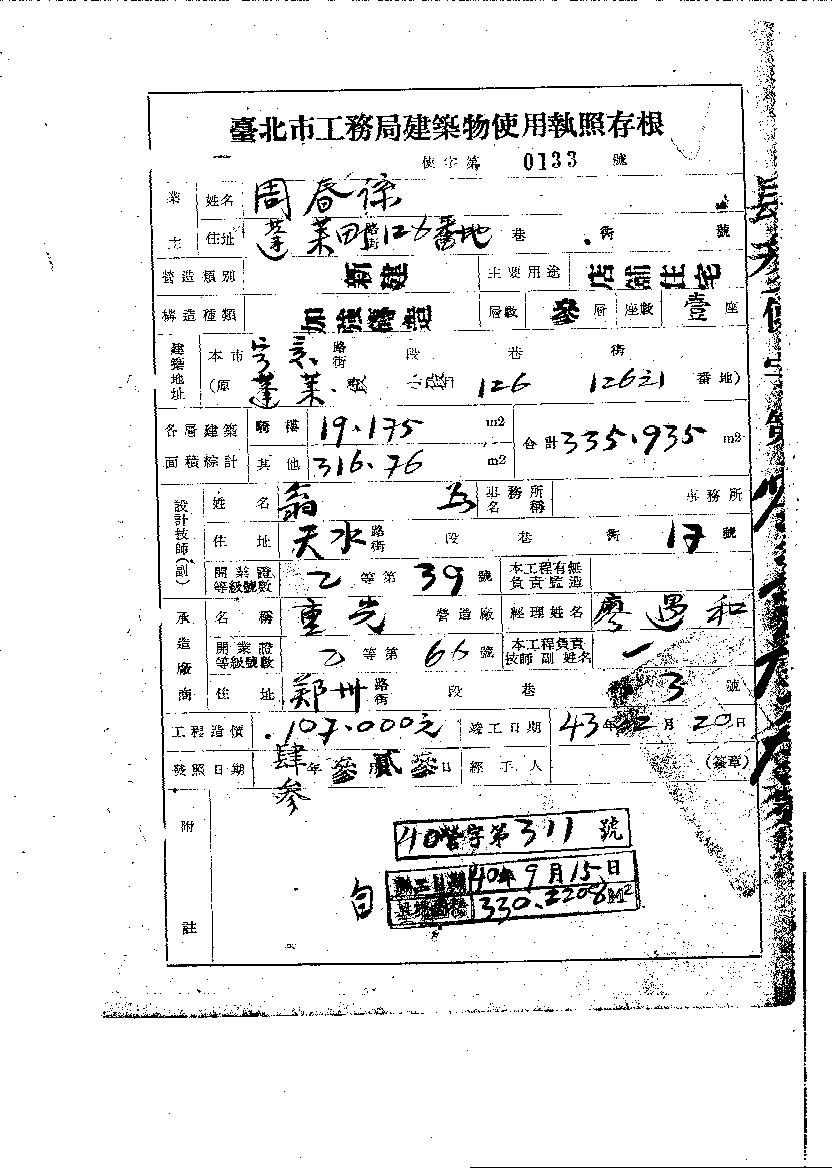 臺北市工務局建築物使用執照存根
使字第 0133 號
業主 姓名 周春
住址 蓬萊町 路街 126番地 巷 街 號
營造類別 新建 主要用途 店舖住宅
構造種類 加強磚造 層數 參 層 座數 壹 座
建築地址 本市 寧夏 路街 段 巷 街
(原 蓬萊 段 小段 126 126之1 番地)
各層建築面積綜計 騎樓 19.175 m2 合計 335.935 m2
其他 316.76 m2
設計技師(副) 姓名 翁 事務所名稱 事務所
住址 天水 路街 段 巷 街 17 號
開業證等級號數 乙 等第 39 號 本工程有無負責監造
承造廠商 名稱 重光 營造廠 經理姓名 廖遇和
開業證等級號數 乙 等第 66 號 本工程負責技師副姓名 一
住址 鄭州 路街 段 巷 3 號
工程造價 107.000元 竣工日期 43年 2月 20日
發照日期 肆參 年 參 月 貳參 日 經手人 (簽章)
附註
40營字第311號
40年9月15日
330.2208M2